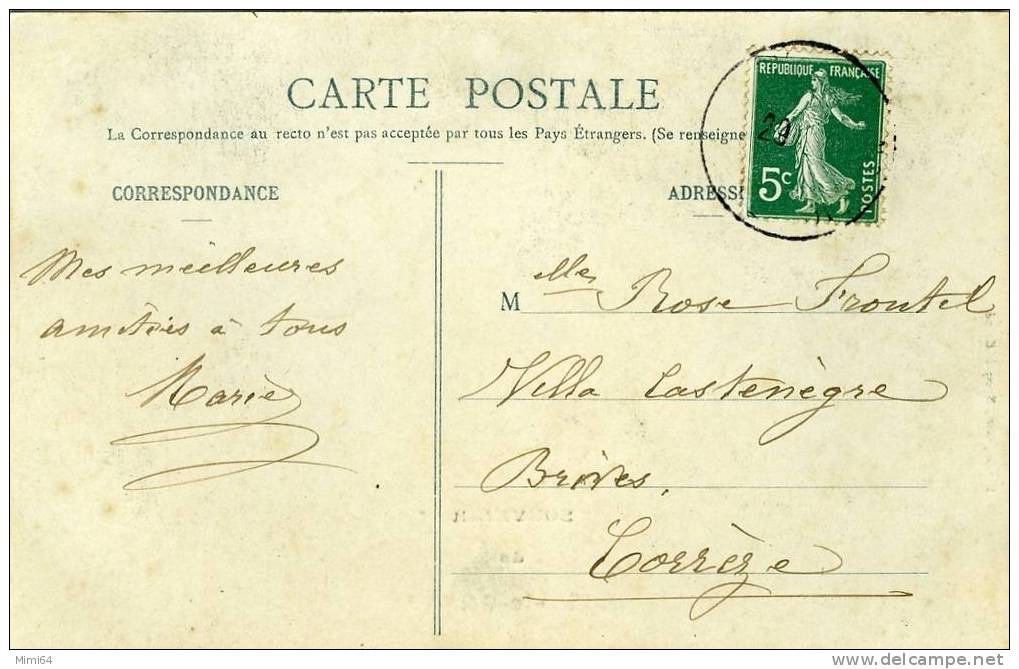 CARTE POSTALE
La Correspondance au recto n'est pas acceptée par tous les Pays Étrangers. (Se renseigne
REPUBLIQUE FRANÇAISE
29
5c
POSTES
CORRESPONDANCE
ADRESS
Mes meilleures
amitiés à tous
Marie
Mlle Rose Froutel
Villa Castenègre
Brives,
Corrèze
Mimi64
delcampe.net